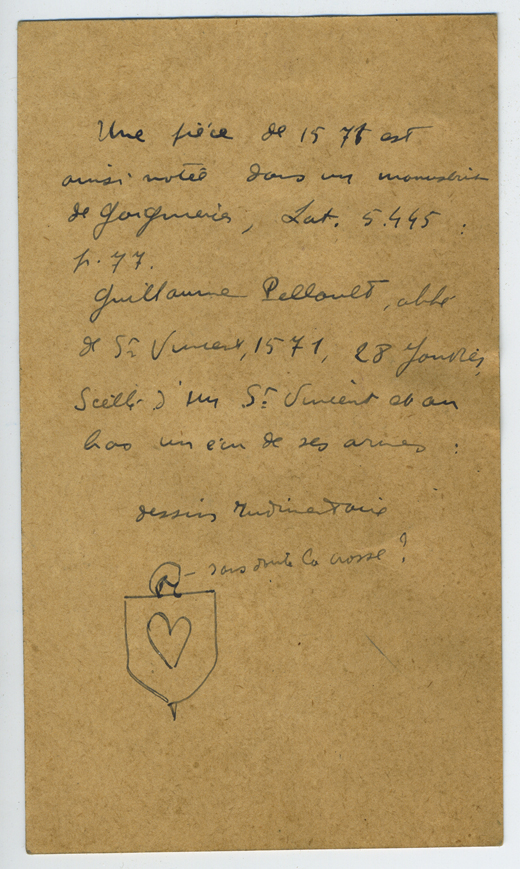 Une pièce de 1571 est
ainsi notée dans un manuscrit
de Gaignieres, Lat. 5.445 :
p. 77.
Guillaume Pellault, abbé
de St Vincent, 1571, 28 Janvier,
Scellé d'un St Vincent et au
bas un écu de ses armes :
dessin rudimentaire
sans doute la crosse ?